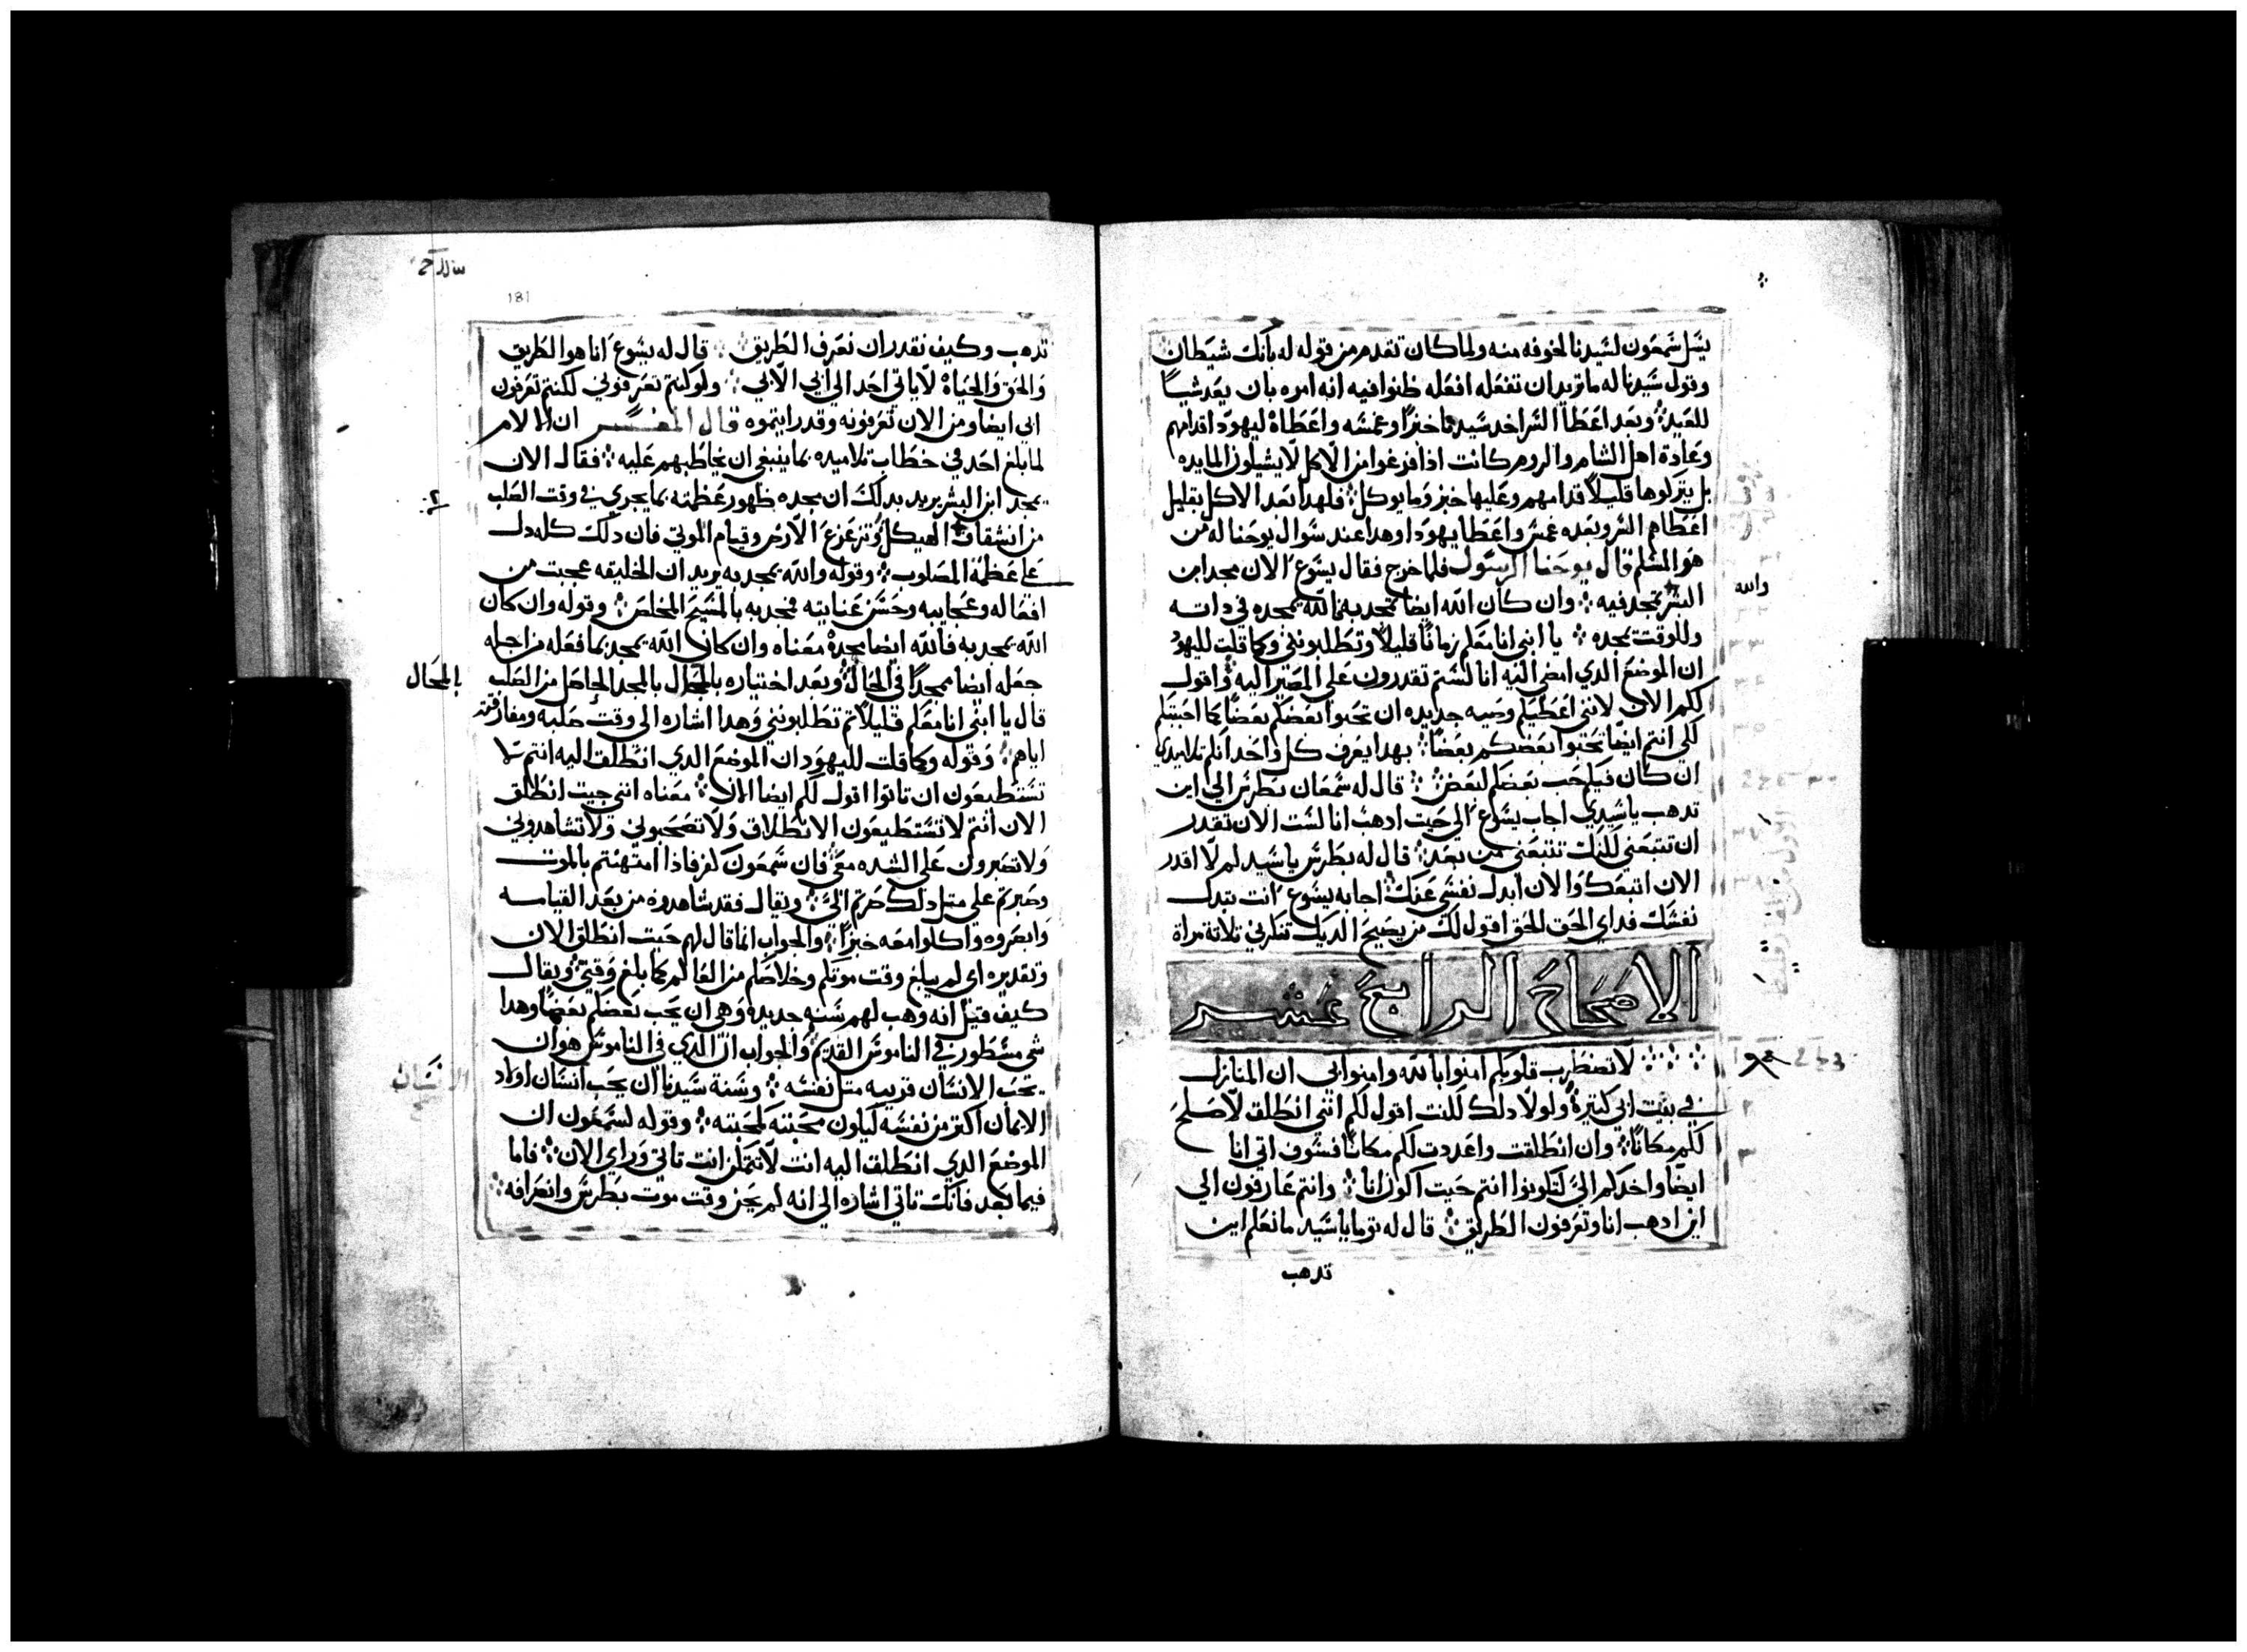 يسل شمعون لسيدنا لخوفه منه ولما كان تقدم من قوله له بانك شيطان
وقول سيدنا له ما تريد ان تفعله افعله ظنوا فيه انه امره بان يعد شيا
للعيد وبعد اعطا السر اخد سيدنا خبزا وغمسه واعطاه ليهودا قدامهم
وعادة اهل الشام والروم كانت اذا فرغوا من الاكل لا يشيلون المايده
بل يتركوها قليلا قدامهم وعليها خبز وما يوكل فلهدا بعد الاكل بقليل
اعطاهم السر وبعده غمس واعطا يهودا وهدا عند سوال يوحنا له من
هو المسلم قال يوحنا الرسول فلما خرج فقال يسوع الان مجد ابن
البشر تمجد فيه وان كان الله ايضا تمجد به فالله يمجده في داته
والله
وللوقت يمجده يا ابني انا معكم زمانا قليلا وتطلبونني وكما قلت لليهود
ان الموضع الدي امضى اليه انا لستم تقدرون على المصير اليه واقول
لكم الان لانني اعطيكم وصيه جديده ان تحبوا بعضكم بعضا كما احببتكم
لكي انتم ايضا تحبوا بعضكم بعضا بهدا يعرف كل واحد انكم تلاميدي
ان كان فيكم حب بعضكم لبعض قال له سمعان بطرس الي اين
تدهب يا سيدي اجاب يسوع الي حيت ادهب انا لست الان تقدر
ان تتبعني لكنك تتبعني من بعد قال له بطرس يا سيد لم لا اقدر
الان اتبعك والان ابدل نفسي عنك اجابه يسوع انت تبدل
نفسك فداي الحق الحق اقول لك من يصيح الديك تنكرني تلاتة مراة
الاصحاح الرابع عشر
لا تضطرب قلوبكم امنوا بالله وامنوا بي ان المنازل
في بيت ابي كتيرة ولولا دلك لكنت اقول لكم انني انطلق لاصلح
لكم مكانا وان انطلقت واعددت لكم مكانا فسوف اتي انا
ايضا واخدكم الي لتكونوا انتم حيت اكون انا وانتم عارفون الي
اين ادهب انا وتعرفون الطريق قال له توما يا سيد ما نعلم اين
تدهب
181
تدهب وكيف نقدر ان نعرف الطريق قال له يسوع انا هو الطريق
والحق والحياة لا ياتي احد الي ابي الا بي ولو كنتم تعرفوني لكنتم تعرفون
ابي ايضا ومن الان تعرفونه وقد رايتموه قال المفسر ان الامر
لما بلغ احد في خطاب تلاميده بما ينبغي ان يخاطبهم عليه فقال الان
يمجد ابن البشر يريد بدلك ان مجده ظهور عظمته بما يجري في وقت الصلب
من انشقاق الهيكل وتزعزع الارض وقيام الموتي فان دلك كله دل
علي عظمة المصلوب وقوله والله يمجد به يريد ان الخليقه عجبت من
افعاله وعجايبه وحسن عنايته فمجد به بالمسيح المخلص وقوله وان كان
الله يمجد به فالله ايضا يمجده معناه وان كان الله يمجد بما فعله من اجله
جعله ايضا ممجدا في الحال وبعد اختياره بالمجال بالمجد الحاصل من الصلب
بالمحال
قال يا ابني انا معكم قليلا تم تطلبونني وهدا اشاره الي وقت صلبه ومفارقته
اياهم وقوله وكما قلت لليهود ان الموضع الدي انطلق اليه انتم لا
تستطيعون ان تاتوا اقول لكم ايضا الان معناه انني حيت انطلق
الان انتم لا تستطيعون الانطلاق ولا تصحبوني ولا تشاهدوني
ولا تصبرون على الشده معي فان شمعون كفر فادا امتهنتم بالموت
وصبرتم على متل دلك صرتم الي ويقال فقد شاهدوه من بعد القيامه
وابصروه واكلوا معه خبزا والجواب انما قال لهم حيت انطلق الان
وتقديره اي لم يبلغ وقت موتكم وخلاصكم من العالم كما بلغ وقتي ويقال
كيف قيل انه وهب لهم سنه جديده وهي ان يحب بعضكم بعضا وهدا
شي مسطور في الناموس القديم والجواب ان الدي في الناموس هو ان
يحب الانسان قريبه متل نفسه وسنة سيدنا ان يحب انسان اولاد
الانسان
الايمان اكتر من نفسه ليكون محبته كمحبته وقوله لسمعون ان
الموضع الدي انطلق اليه انت لا تتمكن انت تاتي وراي الان فاما
فيما بعد فانك تاتي اشاره الي انه لم يحن وقت موت بطرس وانصرافه